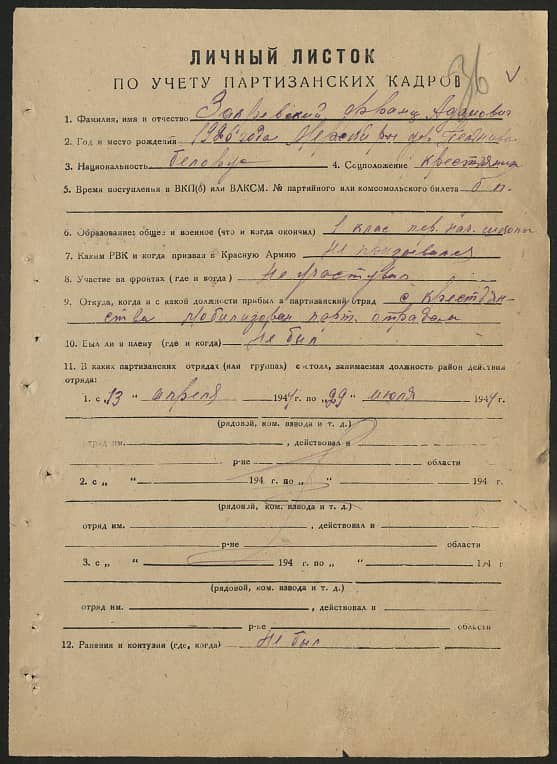 36 v
ЛИЧНЫЙ ЛИСТОК
ПО УЧЕТУ ПАРТИЗАНСКИХ КАДРОВ
1. Фамилия, имя и отчество Франц Адамович
2. Год и место рождения года
3. Национальность белорус 4. Соцположение крестьянин
5. Время поступления в ВКП(б) или ВЛКСМ. № партийного или комсомольского билета б п.
6. Образование: общее и военное (что и когда окончил) 1 клас нач. школы
7. Каким РВК и когда призван в Красную Армию Не призывался
8. Участие на фронтах (где и когда) Не участвовал
9. Откуда, когда и с какой должности прибыл в партизанский отряд с крестьян-
ства мобилизован парт. отрядом
10. Был ли в плену (где и когда) Не был
11. В каких партизанских отрядах (или группах) состоял, занимаемая должность район действия
отряда:
1. с „13 “ апреля 1944 г. по „29“ июля 1944 г.
(рядовой, ком. взвода и т. д.)
отряд им. , действовал в
р-не области
2. с „ “ 194 г. по „ “ 194 г.
(рядовой, ком. взвода и т. д.)
отряд им. , действовал в
р-не области
3. с „ “ 194 г. по „ “ 194 г.
(рядовой, ком. взвода и т. д.)
отряд им. , действовал в
р-не области
12. Ранения и контузии (где, когда) Не был